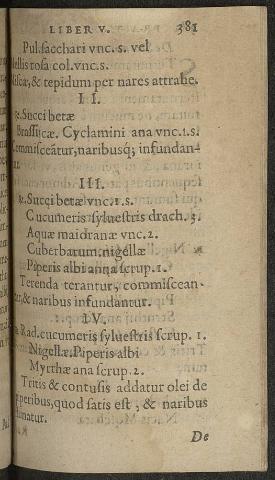 LIBER V. 381
Pul. sacchari vnc. s. vel
Mellis rosa. col. vnc. s.
Misce, & tepidum per nares attrahe.
II.
℞. Succi betæ
Brassicæ. Cyclamini ana vnc. 1. s.
Commisceātur, naribusq; infundan-
tur.
III.
℞. Succi betæ vnc. 1. s.
Cucumeris syluestris drach. 3.
Aquæ maioranæ vnc. 2.
Cuberbarum. nigellæ
Piperis albi anna scrup. 1.
Terenda terantur, commiscean-
tur, & naribus infundantur.
IV.
Rad. cucumeris syluestris scrup. 1.
Nigellæ. Piperis albi
Myrthæ ana scrup. 2.
Tritis & contusis addatur olei de
piperibus, quod satis est, & naribus
De